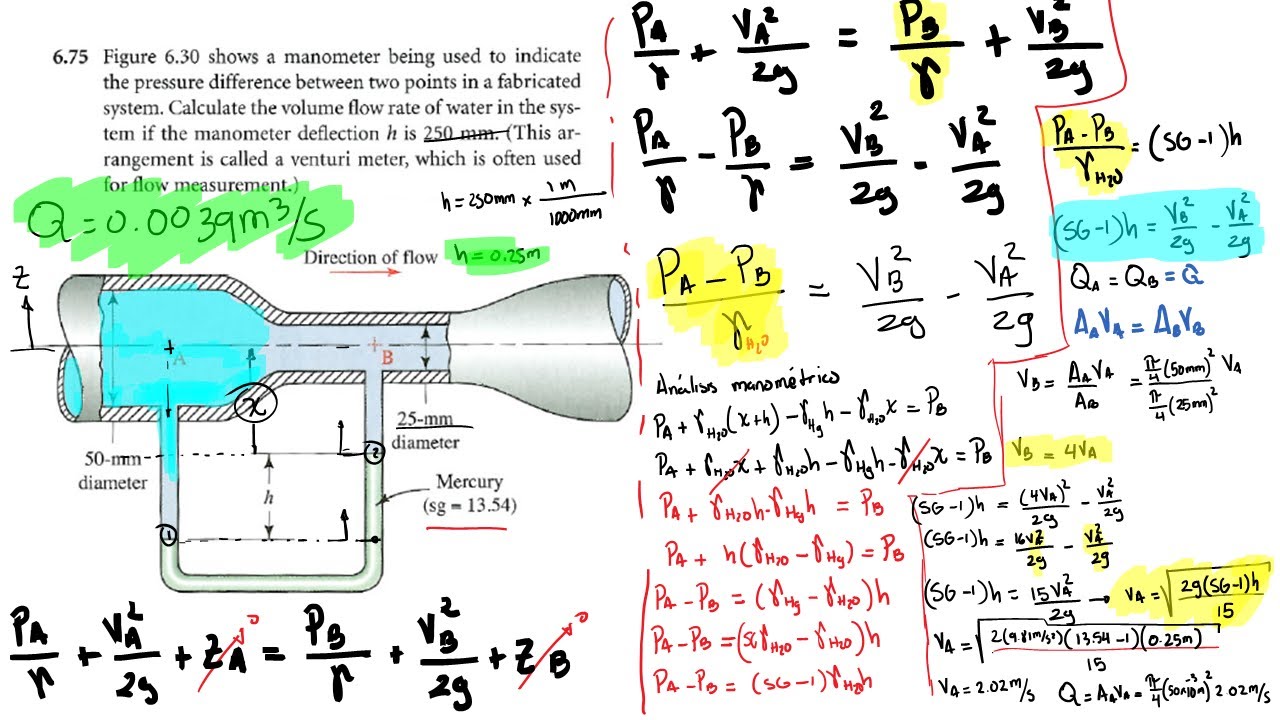 6.75 Figure 6.30 shows a manometer being used to indicate
the pressure difference between two points in a fabricated
system. Calculate the volume flow rate of water in the sys-
tem if the manometer deflection h is 250 mm. (This ar-
rangement is called a venturi meter, which is often used
for flow measurement.)
h = 250mm × 1m / 1000mm
Q = 0.0039 m³/s
Direction of flow
h = 0.25m
Z
A
B
x
25-mm
diameter
50-mm
diameter
2
h
Mercury
(sg = 13.54)
1
P_A/γ + V_A²/2g + Z_A⁰ = P_B/γ + V_B²/2g + Z_B⁰
P_A/γ + V_A²/2g = P_B/γ + V_B²/2g
P_A/γ - P_B/γ = V_B²/2g - V_A²/2g
P_A - P_B / γ_H2O = V_B²/2g - V_A²/2g
Análisis manométrico
P_A + γ_H2O(x+h) - γ_Hg h - γ_H2O x = P_B
P_A + γ_H2O x + γ_H2O h - γ_Hg h - γ_H2O x = P_B
P_A + γ_H2O h - γ_Hg h = P_B
P_A + h(γ_H2O - γ_Hg) = P_B
P_A - P_B = (γ_Hg - γ_H2O)h
P_A - P_B = (SG γ_H2O - γ_H2O)h
P_A - P_B = (SG-1)γ_H2O h
P_A - P_B / γ_H2O = (SG-1)h
(SG-1)h = V_B²/2g - V_A²/2g
Q_A = Q_B = Q
A_A V_A = A_B V_B
V_B = A_A V_A / A_B = π/4 (50mm)² / π/4 (25mm)² V_A
V_B = 4V_A
(SG-1)h = (4V_A)²/2g - V_A²/2g
(SG-1)h = 16V_A²/2g - V_A²/2g
(SG-1)h = 15V_A²/2g → V_A = √(2g(SG-1)h / 15)
V_A = √(2(9.81m/s²)(13.54-1)(0.25m) / 15)
V_A = 2.02m/s Q = A_A V_A = π/4 (50x10⁻³m)² 2.02m/s